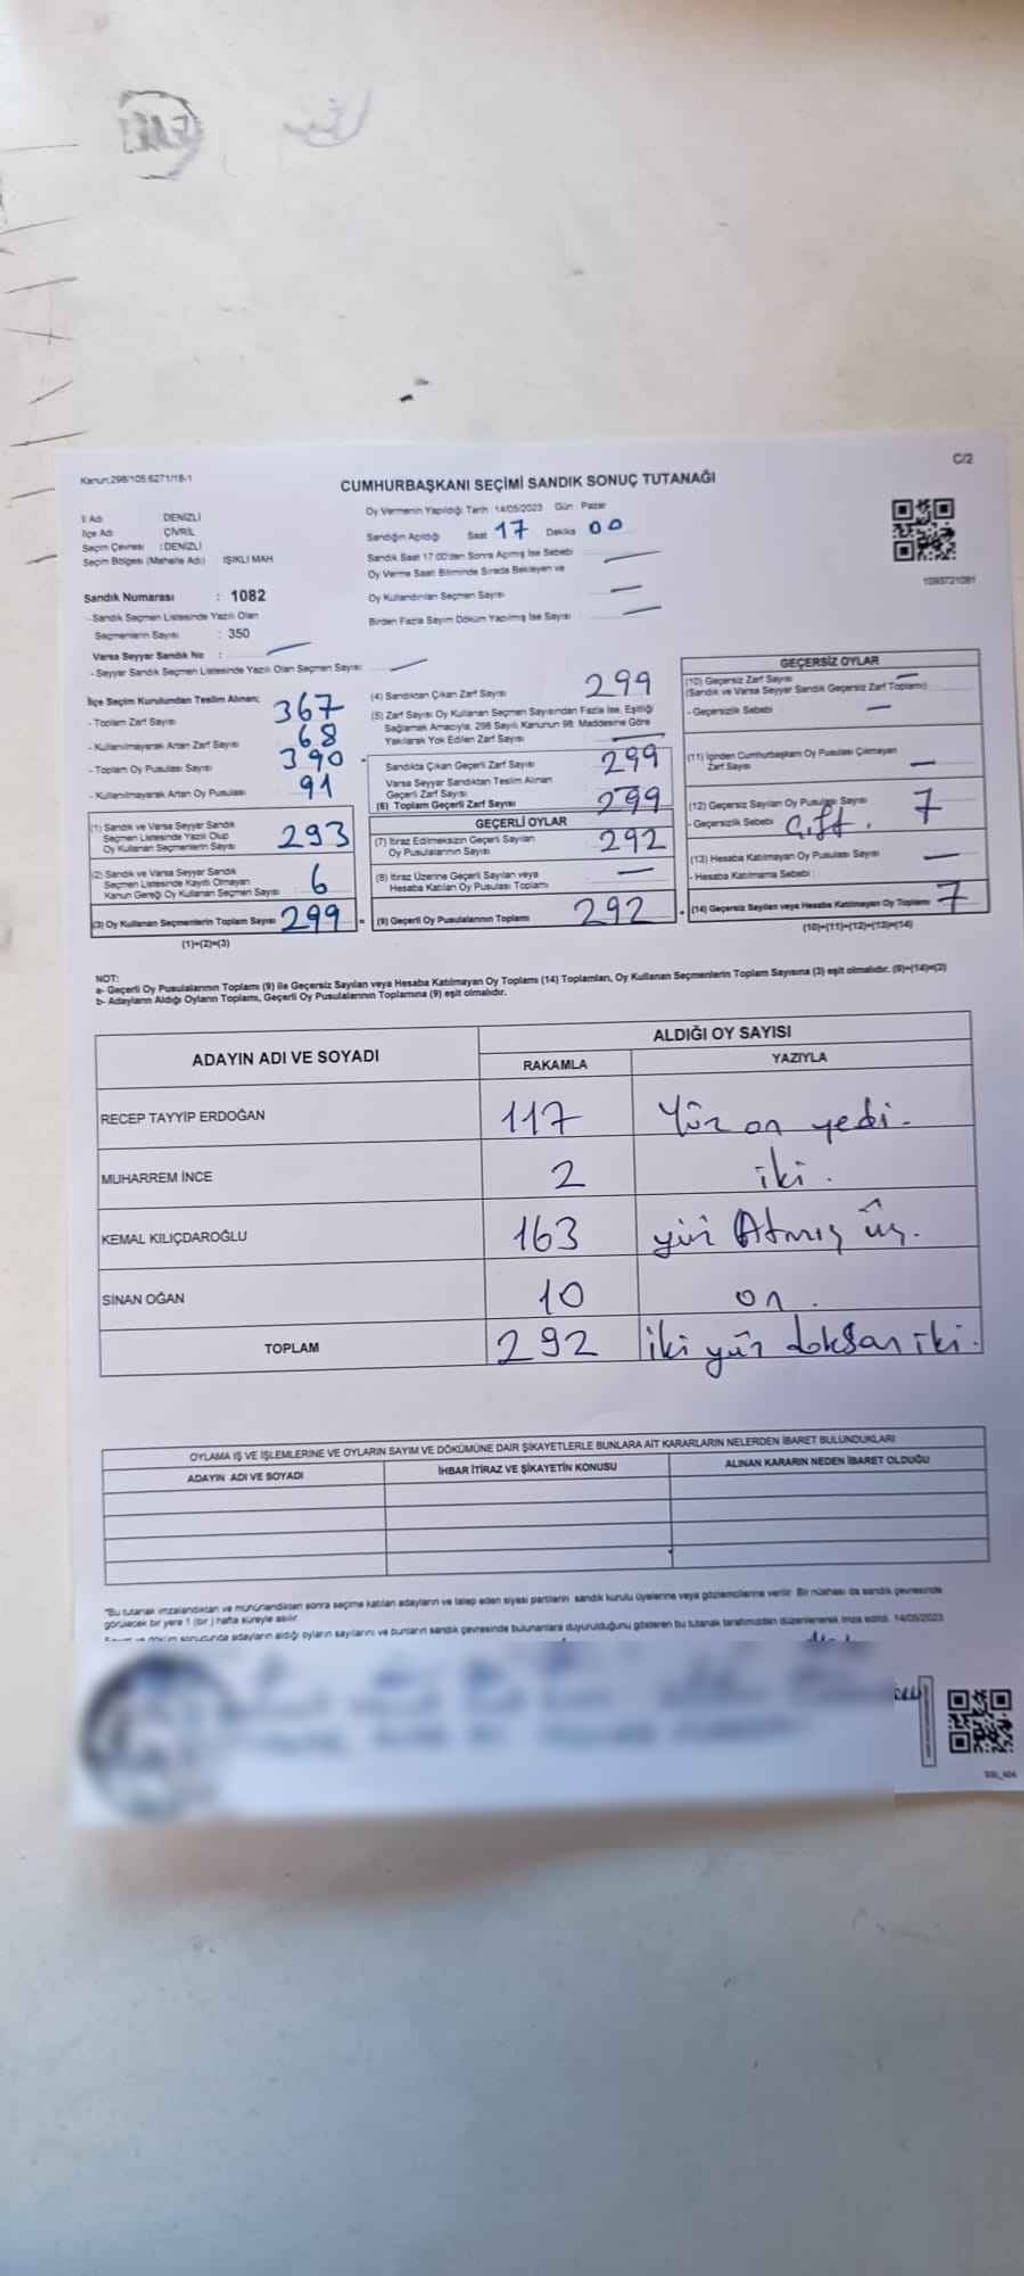 C/2
Kanun:298/105 6271/18-1
CUMHURBAŞKANI SEÇİMİ SANDIK SONUÇ TUTANAĞI
İl Adı DENİZLİ
İlçe Adı ÇİVRİL
Seçim Çevresi : DENİZLİ
Seçim Bölgesi (Mahalle Adı) IŞIKLI MAH
Sandık Numarası : 1082
-Sandık Seçmen Listesinde Yazılı Olan
Seçmenlerin Sayısı : 350
Varsa Seyyar Sandık No :
- Seyyar Sandık Seçmen Listesinde Yazılı Olan Seçmen Sayısı
Oy Vermenin Yapıldığı Tarih 14/05/2023 Gün : Pazar
Sandığın Açıldığı Saat 17 Dakika 00
Sandık Saat 17.00'den Sonra Açılmış İse Sebebi
Oy Verme Saati Bitiminde Sırada Bekleyen ve
Oy Kullandırılan Seçmen Sayısı
Birden Fazla Sayım Döküm Yapılmış İse Sayısı
İlçe Seçim Kurulundan Teslim Alınan;
- Toplam Zarf Sayısı 367
- Kullanılmayarak Artan Zarf Sayısı 68
- Toplam Oy Pusulası Sayısı 390
- Kullanılmayarak Artan Oy Pusulası 91
(1) Sandık ve Varsa Seyyar Sandık
Seçmen Listesinde Yazılı Olup
Oy Kullanan Seçmenlerin Sayısı 293
(2) Sandık ve Varsa Seyyar Sandık
Seçmen Listesinde Kayıtlı Olmayan
Kanun Gereği Oy Kullanan Seçmen Sayısı 6
(3) Oy Kullanan Seçmenlerin Toplam Sayısı 299
(1)+(2)=(3)
(4) Sandıktan Çıkan Zarf Sayısı 299
(5) Zarf Sayısı Oy Kullanan Seçmen Sayısından Fazla İse, Eşitliği
Sağlamak Amacıyla, 298 Sayılı Kanunun 98. Maddesine Göre
Yakılarak Yok Edilen Zarf Sayısı
Sandıkta Çıkan Geçerli Zarf Sayısı 299
Varsa Seyyar Sandıktan Teslim Alınan
Geçerli Zarf Sayısı
(6) Toplam Geçerli Zarf Sayısı 299
GEÇERLİ OYLAR
(7) İtiraz Edilmeksizin Geçerli Sayılan
Oy Pusulalarının Sayısı 292
(8) İtiraz Üzerine Geçerli Sayılan veya
Hesaba Katılan Oy Pusulası Toplamı
(9) Geçerli Oy Pusulalarının Toplamı 292
GEÇERSİZ OYLAR
(10) Geçersiz Zarf Sayısı
(Sandık ve Varsa Seyyar Sandık Geçersiz Zarf Toplamı)
- Geçersizlik Sebebi
(11) İçinden Cumhurbaşkanı Oy Pusulası Çıkmayan
Zarf Sayısı
(12) Geçersiz Sayılan Oy Pusulası Sayısı 7
- Geçersizlik Sebebi Çift.
(13) Hesaba Katılmayan Oy Pusulası Sayısı
- Hesaba Katılmama Sebebi
(14) Geçersiz Sayılan veya Hesaba Katılmayan Oy Toplamı 7
(10)+(11)+(12)+(13)=(14)
NOT:
a- Geçerli Oy Pusulalarının Toplamı (9) ile Geçersiz Sayılan veya Hesaba Katılmayan Oy Toplamı (14) Toplamları, Oy Kullanan Seçmenlerin Toplam Sayısına (3) eşit olmalıdır. (9)+(14)=(3)
b- Adayların Aldığı Oyların Toplamı, Geçerli Oy Pusulalarının Toplamına (9) eşit olmalıdır.
ADAYIN ADI VE SOYADI ALDIĞI OY SAYISI
RAKAMLA YAZIYLA
RECEP TAYYİP ERDOĞAN 117 Yüz on yedi.
MUHARREM İNCE 2 iki.
KEMAL KILIÇDAROĞLU 163 yüz Atmış üç.
SİNAN OĞAN 10 on.
TOPLAM 292 iki yüz doksan iki.
OYLAMA İŞ VE İŞLEMLERİNE VE OYLARIN SAYIM VE DÖKÜMÜNE DAİR ŞİKAYETLERLE BUNLARA AİT KARARLARIN NELERDEN İBARET BULUNDUKLARI
ADAYIN ADI VE SOYADI İHBAR İTİRAZ VE ŞİKAYETİN KONUSU ALINAN KARARIN NEDEN İBARET OLDUĞU
"Bu tutanak imzalandıktan ve mühürlendikten sonra seçime katılan adayların ve talep eden siyasi partilerin sandık kurulu üyelerine veya gözlemcilerine verilir. Bir nüshası da sandık çevresinde
görülecek bir yere 1 (bir) hafta süreyle asılır.
Sayım ve döküm sonucunda adayların aldığı oyların sayılarını ve bunların sandık çevresinde bulunanlara duyurulduğunu gösteren bu tutanak tarafımızdan düzenlenerek imza edildi. 14/05/2023